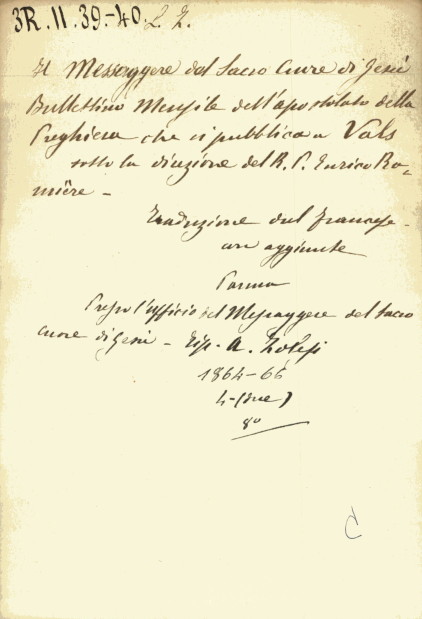 3R.11.39.-40. 2 2.
Il Messaggere del Sacro Cuore di Jesù
Bullettino Mensile dell'apostolato della
Preghiera che si pubblica a Vals
sotto la direzione del R. P. Enrico Ra=
mière -
Traduzione dal francese
con aggiunte
Parma
Presso l'ufficio del Messaggere del Sacro
Cuore di Gesù - Tip. A.
1864-66
4-(due)
8º
C